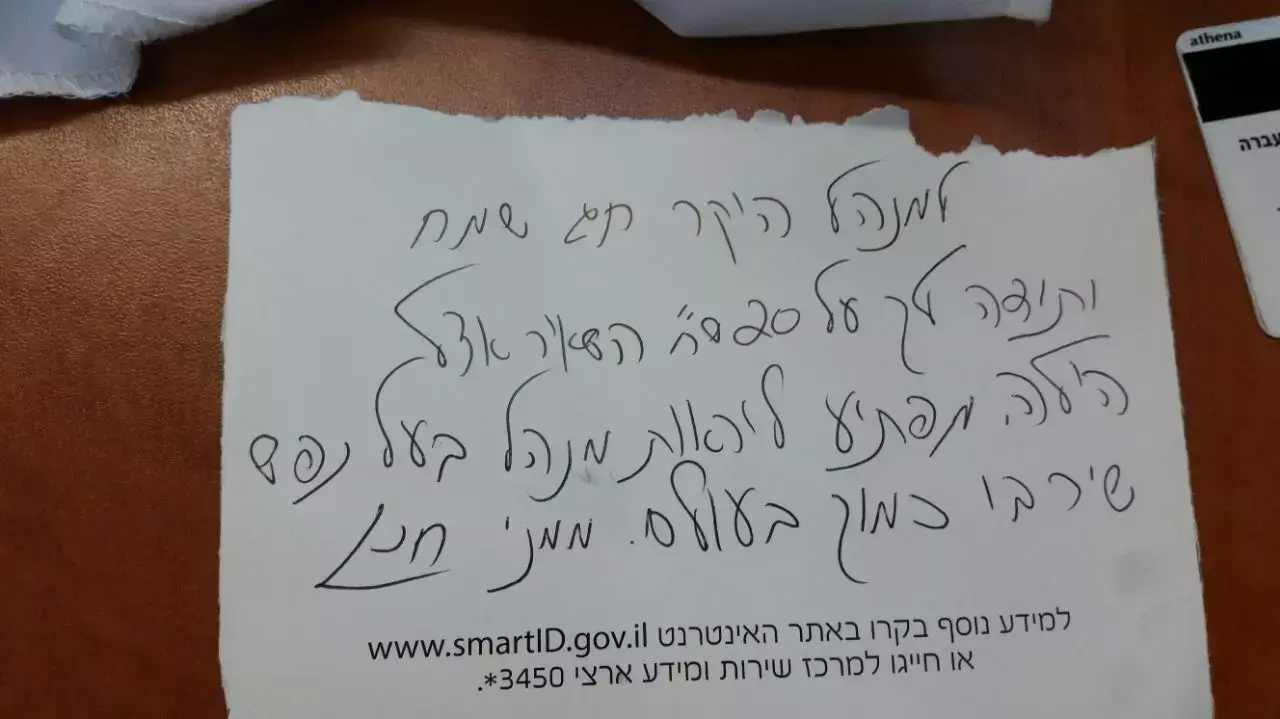 athena
עברה
למנהל היקר חג שמח
ותודה לך על 20 ש"ח השאיר אצל
הילה מפתיע ליראות מנהל בעל נפש
שירבו כמוך בעולם. ממני חנן
למידע נוסף בקרו באתר האינטרנט www.smartID.gov.il
או חייגו למרכז שירות ומידע ארצי 3450*.